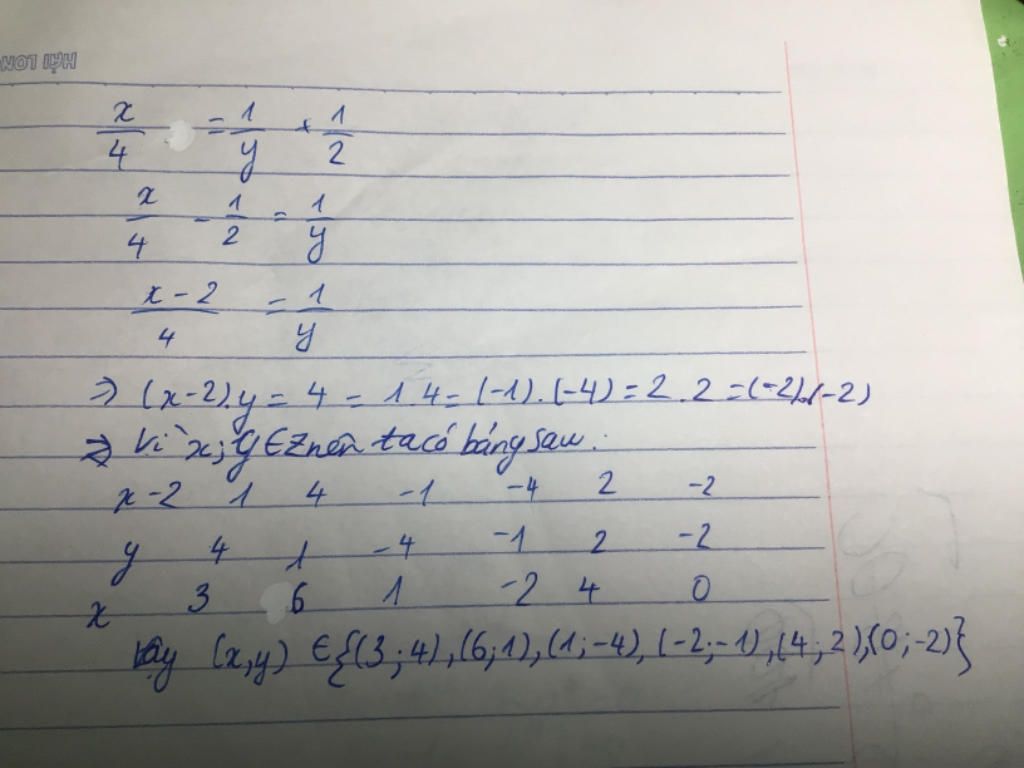 HẢI LONG
x/4 = 1/y + 1/2
x/4 - 1/2 = 1/y
x-2/4 = 1/y
⇒ (x-2).y = 4 = 1.4 = (-1).(-4) = 2.2 = (-2).(-2)
⇒ Vì x;y ∈ Z nên ta có bảng sau:
x-2 1 4 -1 -4 2 -2
y 4 1 -4 -1 2 -2
x 3 6 1 -2 4 0
Vậy (x,y) ∈ {(3;4),(6;1),(1;-4),(-2;-1),(4;2),(0;-2)}